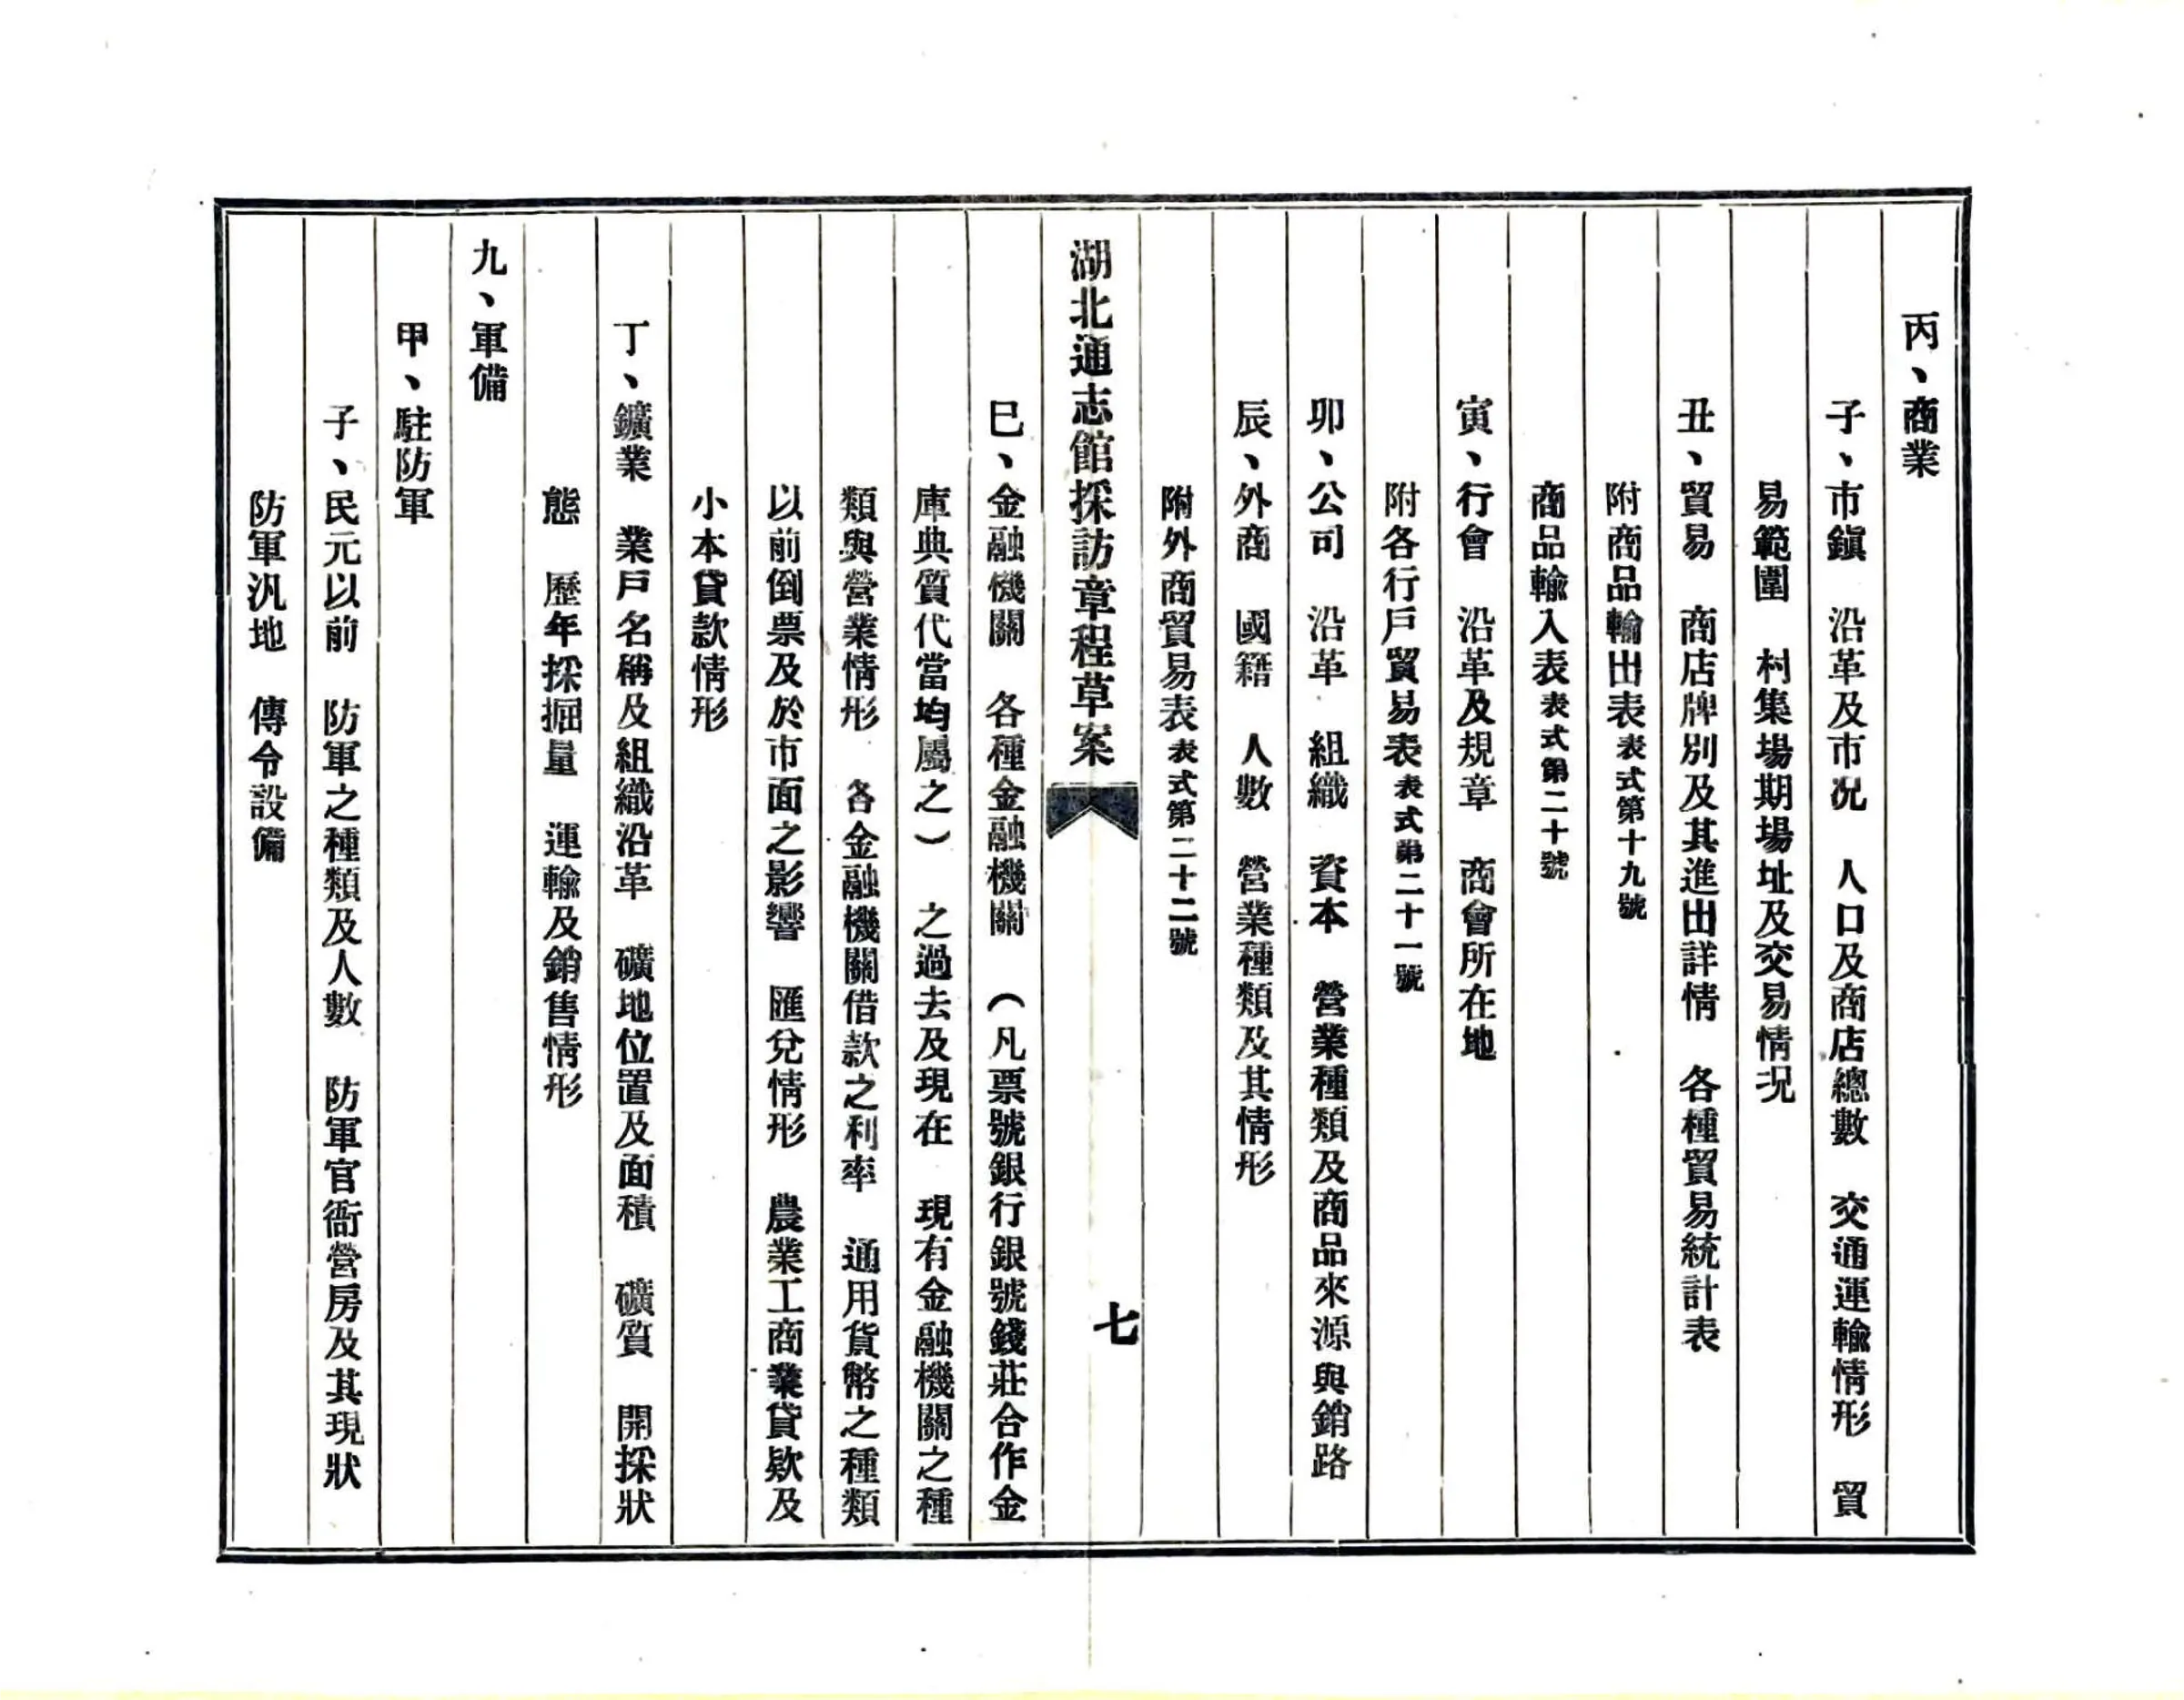 丙、商業
子、市鎭　沿革及市况　人口及商店總數　交通運輸情形　貿
易範圍　村集場期場址及交易情况
丑、貿易　商店牌別及其進出詳情　各種貿易統計表
附商品輸出表表式第十九號
商品輸入表表式第二十號
寅、行會　沿革及規章　商會所在地
附各行戶貿易表表式第二十一號
卯、公司　沿革　組織　資本　營業種類及商品來源與銷路
辰、外商　國籍　人數　營業種類及其情形
附外商貿易表表式第二十二號
湖北通志館採訪章程草案　七
巳、金融機關　各種金融機關　（凡票號銀行銀號錢莊合作金
庫典質代當均屬之）　之過去及現在　現有金融機關之種
類與營業情形　各金融機關借款之利率　通用貨幣之種類
以前倒票及於市面之影響　匯兌情形　農業工商業貸欵及
小本貸款情形
丁、鑛業　業戶名稱及組織沿革　礦地位置及面積　礦質　開採狀
態　歷年採掘量　運輸及銷售情形
九、軍備
甲、駐防軍
子、民元以前　防軍之種類及人數　防軍官衙營房及其現狀
防軍汎地　傳令設備